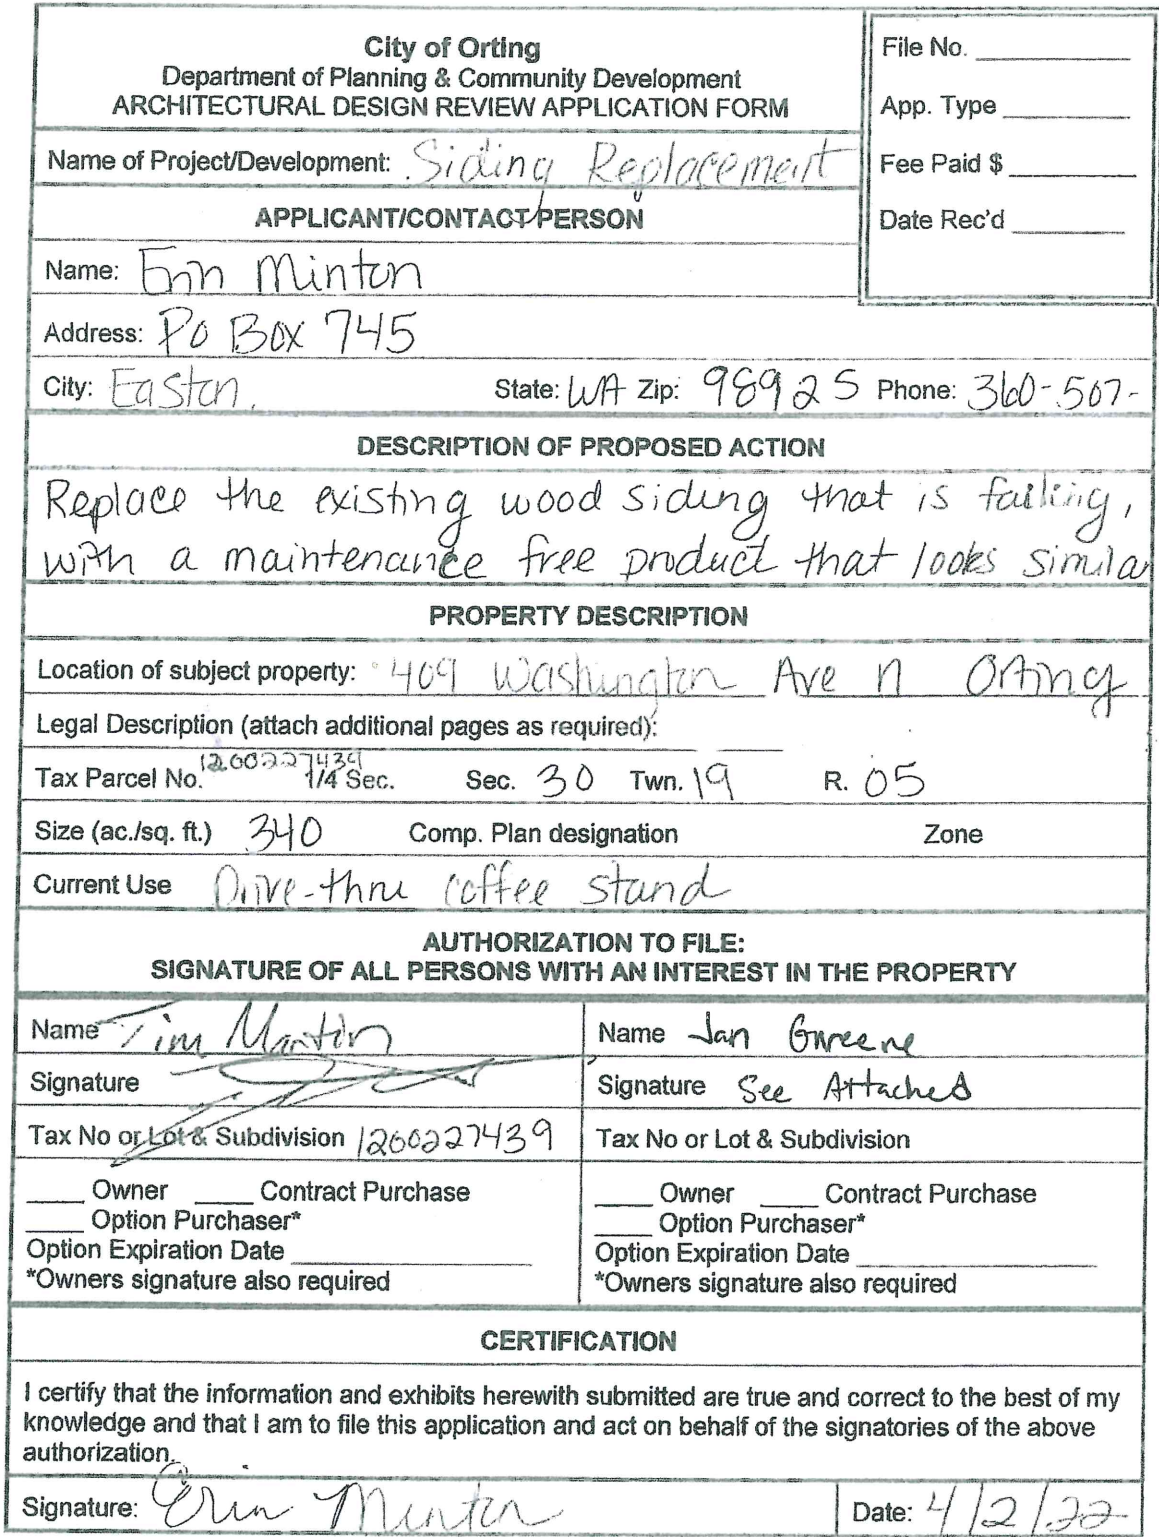 City of Orting
Department of Planning & Community Development
ARCHITECTURAL DESIGN REVIEW APPLICATION FORM
File No.
App. Type
Fee Paid $
Date Rec'd
Name of Project/Development: Siding Replacement
APPLICANT/CONTACT PERSON
Name: Erin Minton
Address: Po Box 745
City: Easton, State: WA Zip: 98925 Phone: 360-507-
DESCRIPTION OF PROPOSED ACTION
Replace the existing wood siding that is failing,
with a maintenance free product that looks similar
PROPERTY DESCRIPTION
Location of subject property: 409 Washington Ave N Orting
Legal Description (attach additional pages as required):
Tax Parcel No. 1200227439 1/4 Sec. Sec. 30 Twn. 19 R. 05
Size (ac./sq. ft.) 340 Comp. Plan designation Zone
Current Use Drive-thru coffee stand
AUTHORIZATION TO FILE:
SIGNATURE OF ALL PERSONS WITH AN INTEREST IN THE PROPERTY
Name Tim Martin
Signature
Tax No or Lot & Subdivision 1200227439
Owner Contract Purchase
Option Purchaser*
Option Expiration Date
*Owners signature also required
Name Jan Gwreene
Signature See Attached
Tax No or Lot & Subdivision
Owner Contract Purchase
Option Purchaser*
Option Expiration Date
*Owners signature also required
CERTIFICATION
I certify that the information and exhibits herewith submitted are true and correct to the best of my
knowledge and that I am to file this application and act on behalf of the signatories of the above
authorization.
Signature: Erin Minton Date: 4/2/22